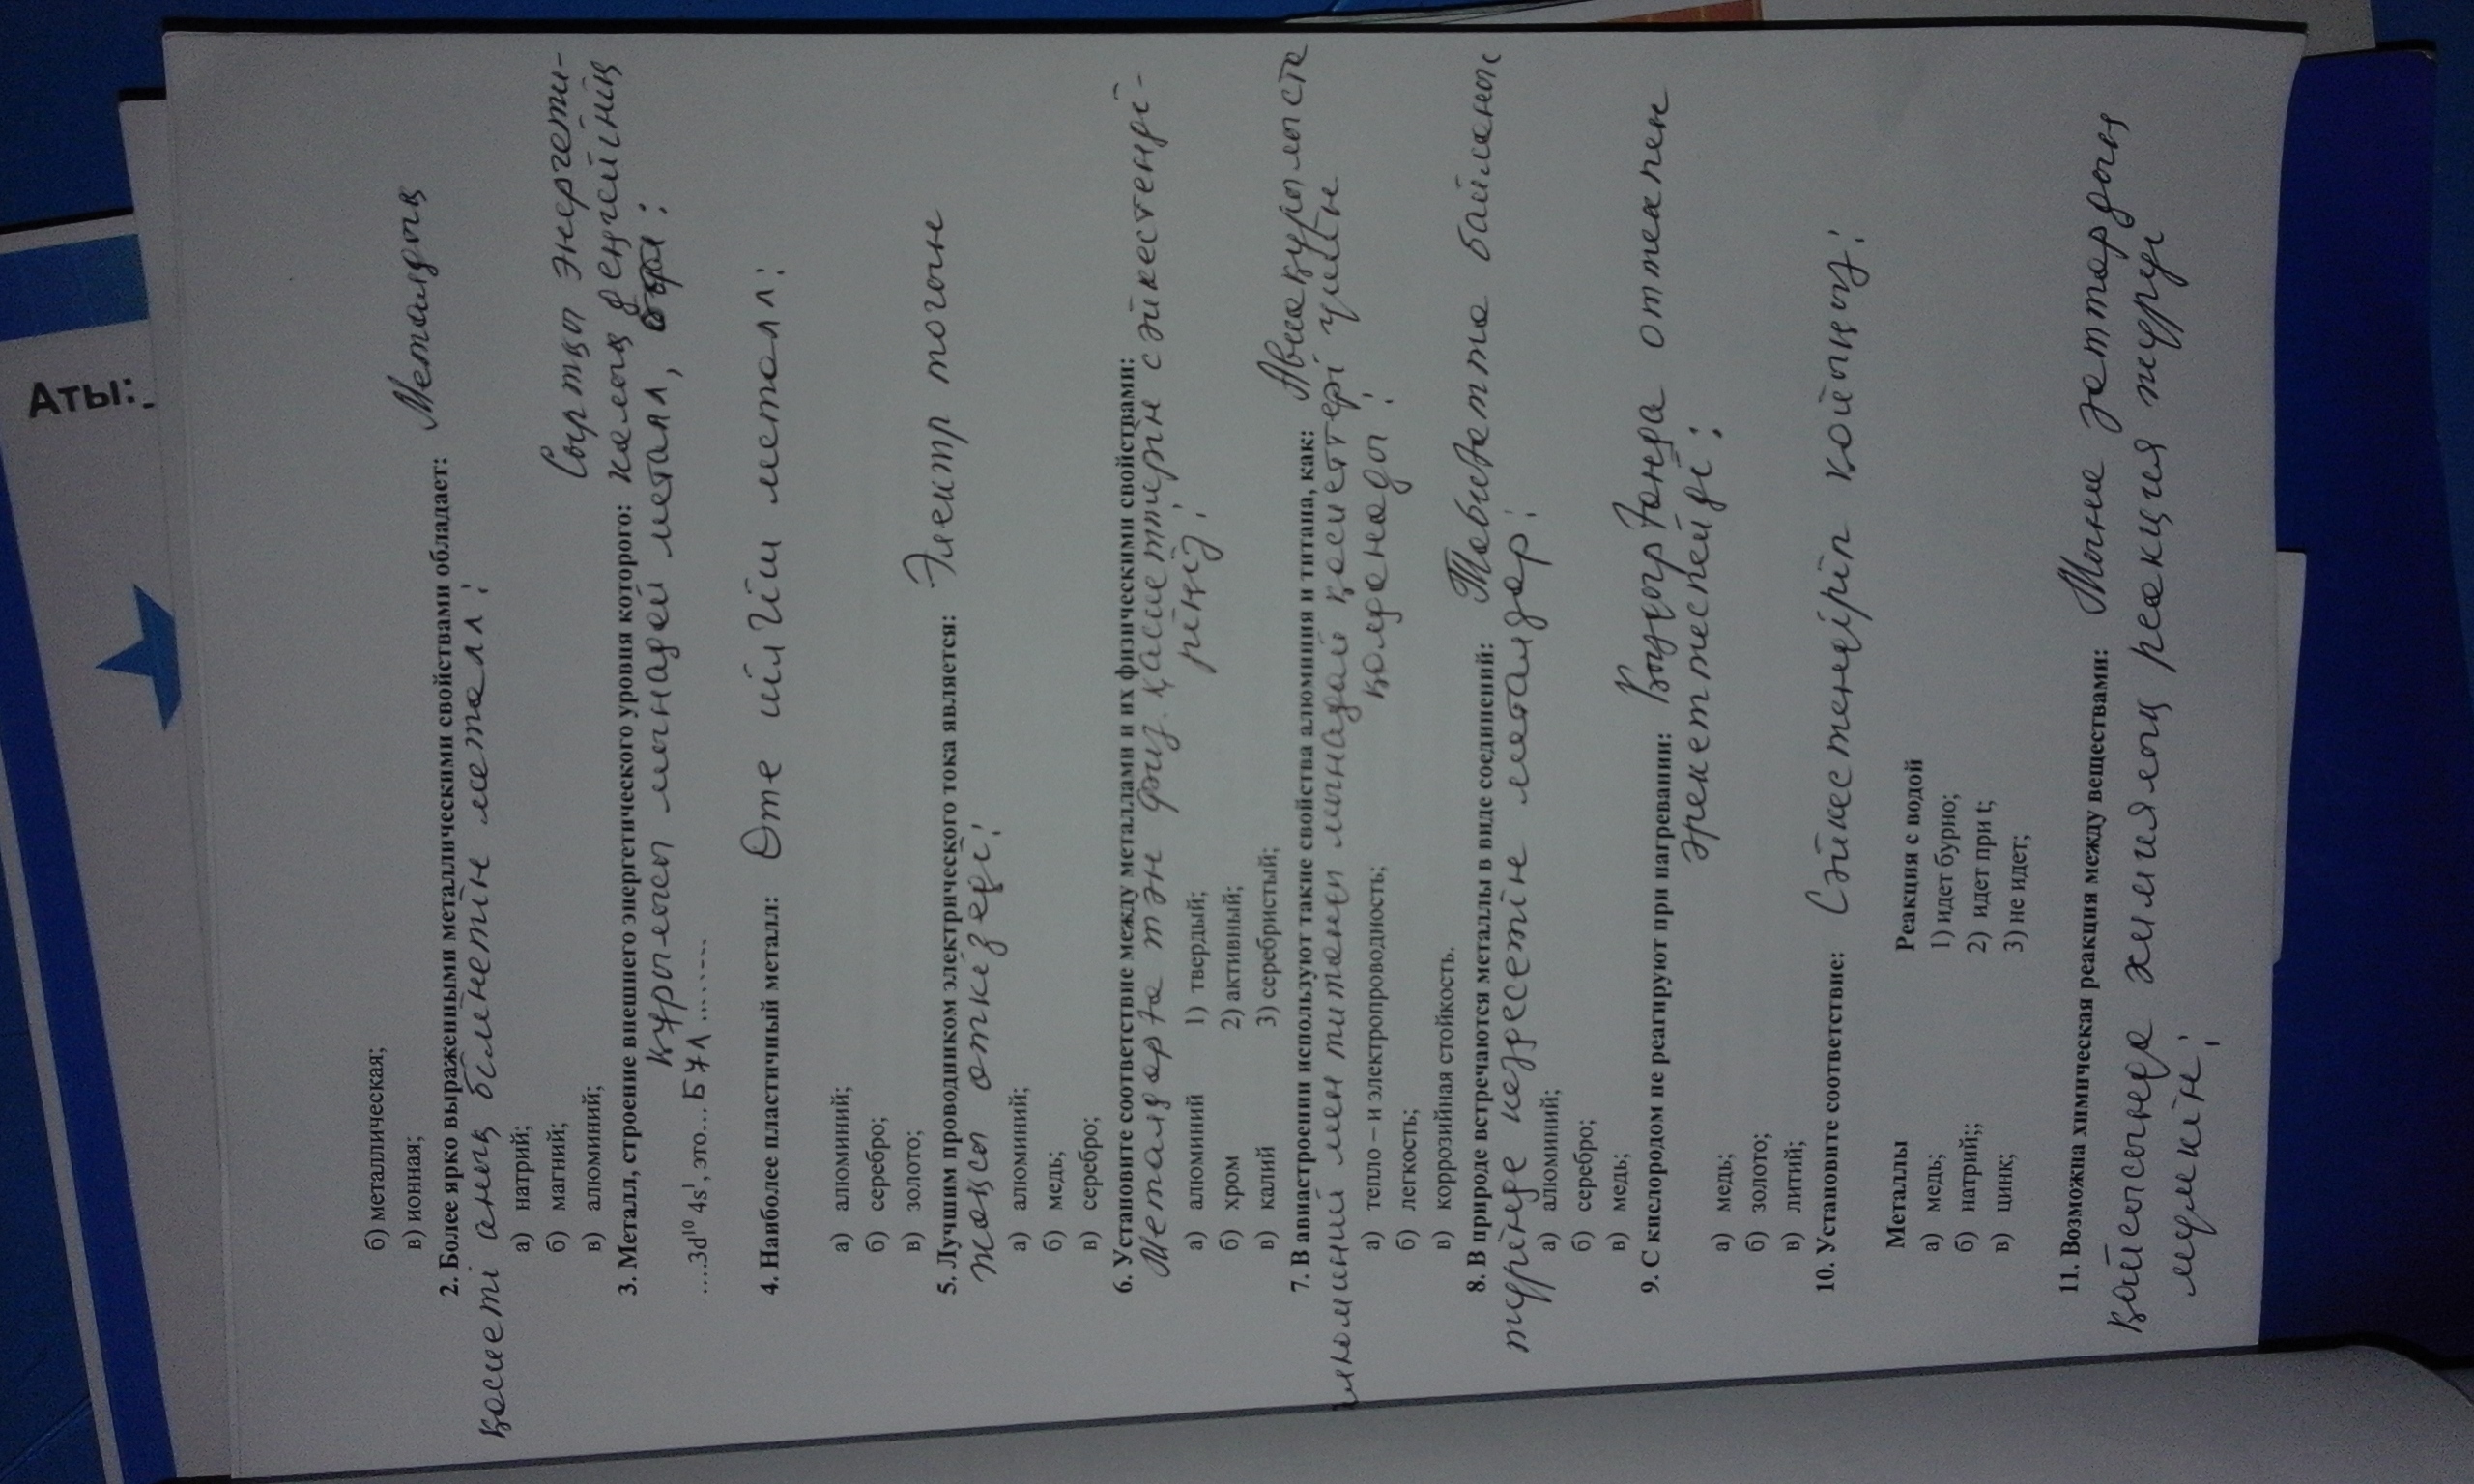 Аты:
б) металлическая;
в) ионная;
2. Более ярко выраженными металлическими свойствами обладает: Металдық
қасиеті анық білінетін металл:
а) натрий;
б) магний;
в) алюминий;
Сыртқы энергети-
3. Металл, строение внешнего энергетического уровня которого: калық деңгейінің
құрылысы мынадай металл,
....3d¹⁰ 4s¹, это... Бұл.......
4. Наиболее пластичный металл: Өте иілгіш металл:
а) алюминий;
б) серебро;
в) золото;
5. Лучшим проводником электрического тока является: Электр тогын
жақсы өткізеді:
а) алюминий;
б) медь;
в) серебро;
6. Установите соответствие между металлами и их физическими свойствами:
Металдарға тән физ. қасиеттерін сәйкестенді-
ріңіз:
а) алюминий 1) твердый;
б) хром 2) активный;
в) калий 3) серебристый;
7. В авиастроении используют такие свойства алюминия и титана, как: Авиақұрылыста
алюминий мен титанды мынадай қасиеттері үшін
қолданады:
а) тепло – и электропроводность;
б) легкость;
в) коррозийная стойкость.
8. В природе встречаются металлы в виде соединений: Табиғатта байланыс
түрінде кездесетін металдар:
а) алюминий;
б) серебро;
в) медь;
9. С кислородом не реагируют при нагревании: Қыздырғанда оттекпен
әрекеттеспейді:
а) медь;
б) золото;
в) литий;
10. Установите соответствие: Сәйкестендіріп қойыңыз:
Металлы Реакция с водой
а) медь; 1) идет бурно;
б) натрий;; 2) идет при t;
в) цинк; 3) не идет;
11. Возможна химическая реакция между веществами: Мына заттардың
қайсысында химиялық реакция жүруі
мүмкін: